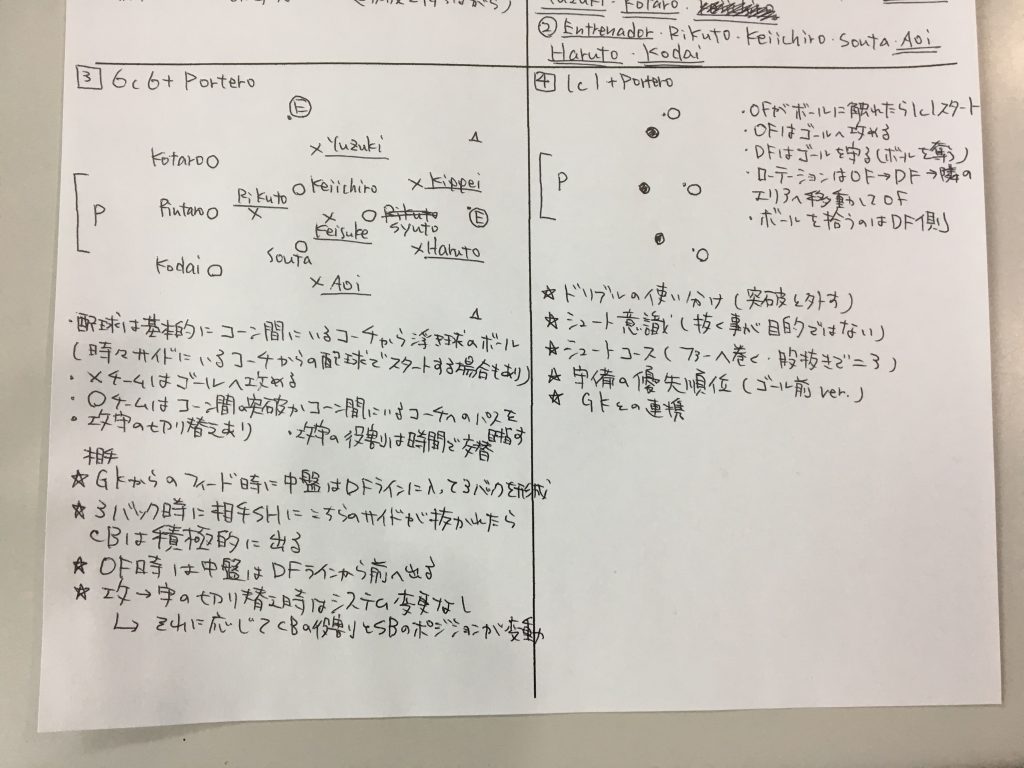 Yuzuki・Kotaro・
② Entrenador・Rikuto・Keiichiro・Souta・Aoi
Haruto・Kodai
3 6c6+ Portero
E
Yuzuki
Kotaro
Keiichiro
Kippei
Rikuto
P
Rintaro
Rikuto
E
Keisuke
syuto
Souta
Haruto
Kodai
Aoi
・配球は基本的にコーン間にいるコーチから浮き球のボール
(時々サイドにいるコーチからの配球でスタートする場合もあり)
・×チームはゴールへ攻める
・○チームはコーン間の突破かコーン間にいるコーチへのパスを目指す
・攻守の切り替えあり ・攻守の役割は時間で交替
相手
☆ GKからのフィード時に中盤はDFラインに入って3バックを形成
☆ 3バック時に相手SHにこちらのサイドが抜かれたら
CBは積極的に出る
☆ OF時は中盤はDFラインから前へ出る
☆ 攻→守の切り替え時はシステム変更なし
↳ それに応じてCBの役割とSBのポジションが変動
4 1c1+Portero
P
・OFがボールに触れたら1c1スタート
・OFはゴールへ攻める
・DFはゴールを守る(ボールを奪う)
・ローテーションはOF→DF→隣の
エリアへ移動してOF
・ボールを拾うのはDF側
☆ ドリブルの使い分け(突破と外す)
☆ シュート意識(抜く事が目的ではない)
☆ シュートコース(ファーへ巻く・股抜きでニア)
☆ 守備の優先順位(ゴール前ver.)
☆ GKとの連携